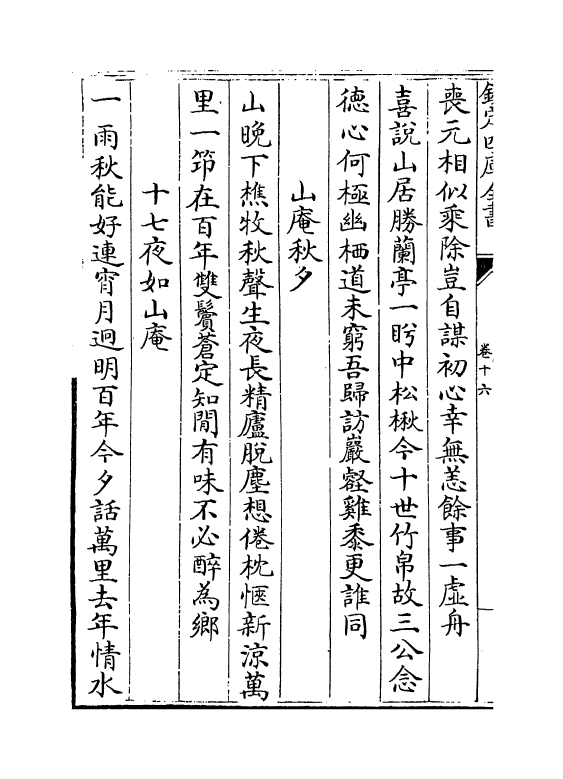 欽定四庫全書
卷十六
喪元相似乘除豈自謀初心幸無恙餘事一虛舟
喜說山居勝蘭亭一眄中松楸今十世竹帛故三公念
德心何極幽栖道未窮吾歸訪巖壑雞黍更誰同
山庵秋夕
山晚下樵牧秋聲生夜長精廬脫塵想倦枕愜新涼萬
里一笻在百年雙鬢蒼定知閒有味不必醉為鄉
十七夜如山庵
一雨秋能好連宵月迥明百年今夕話萬里去年情水